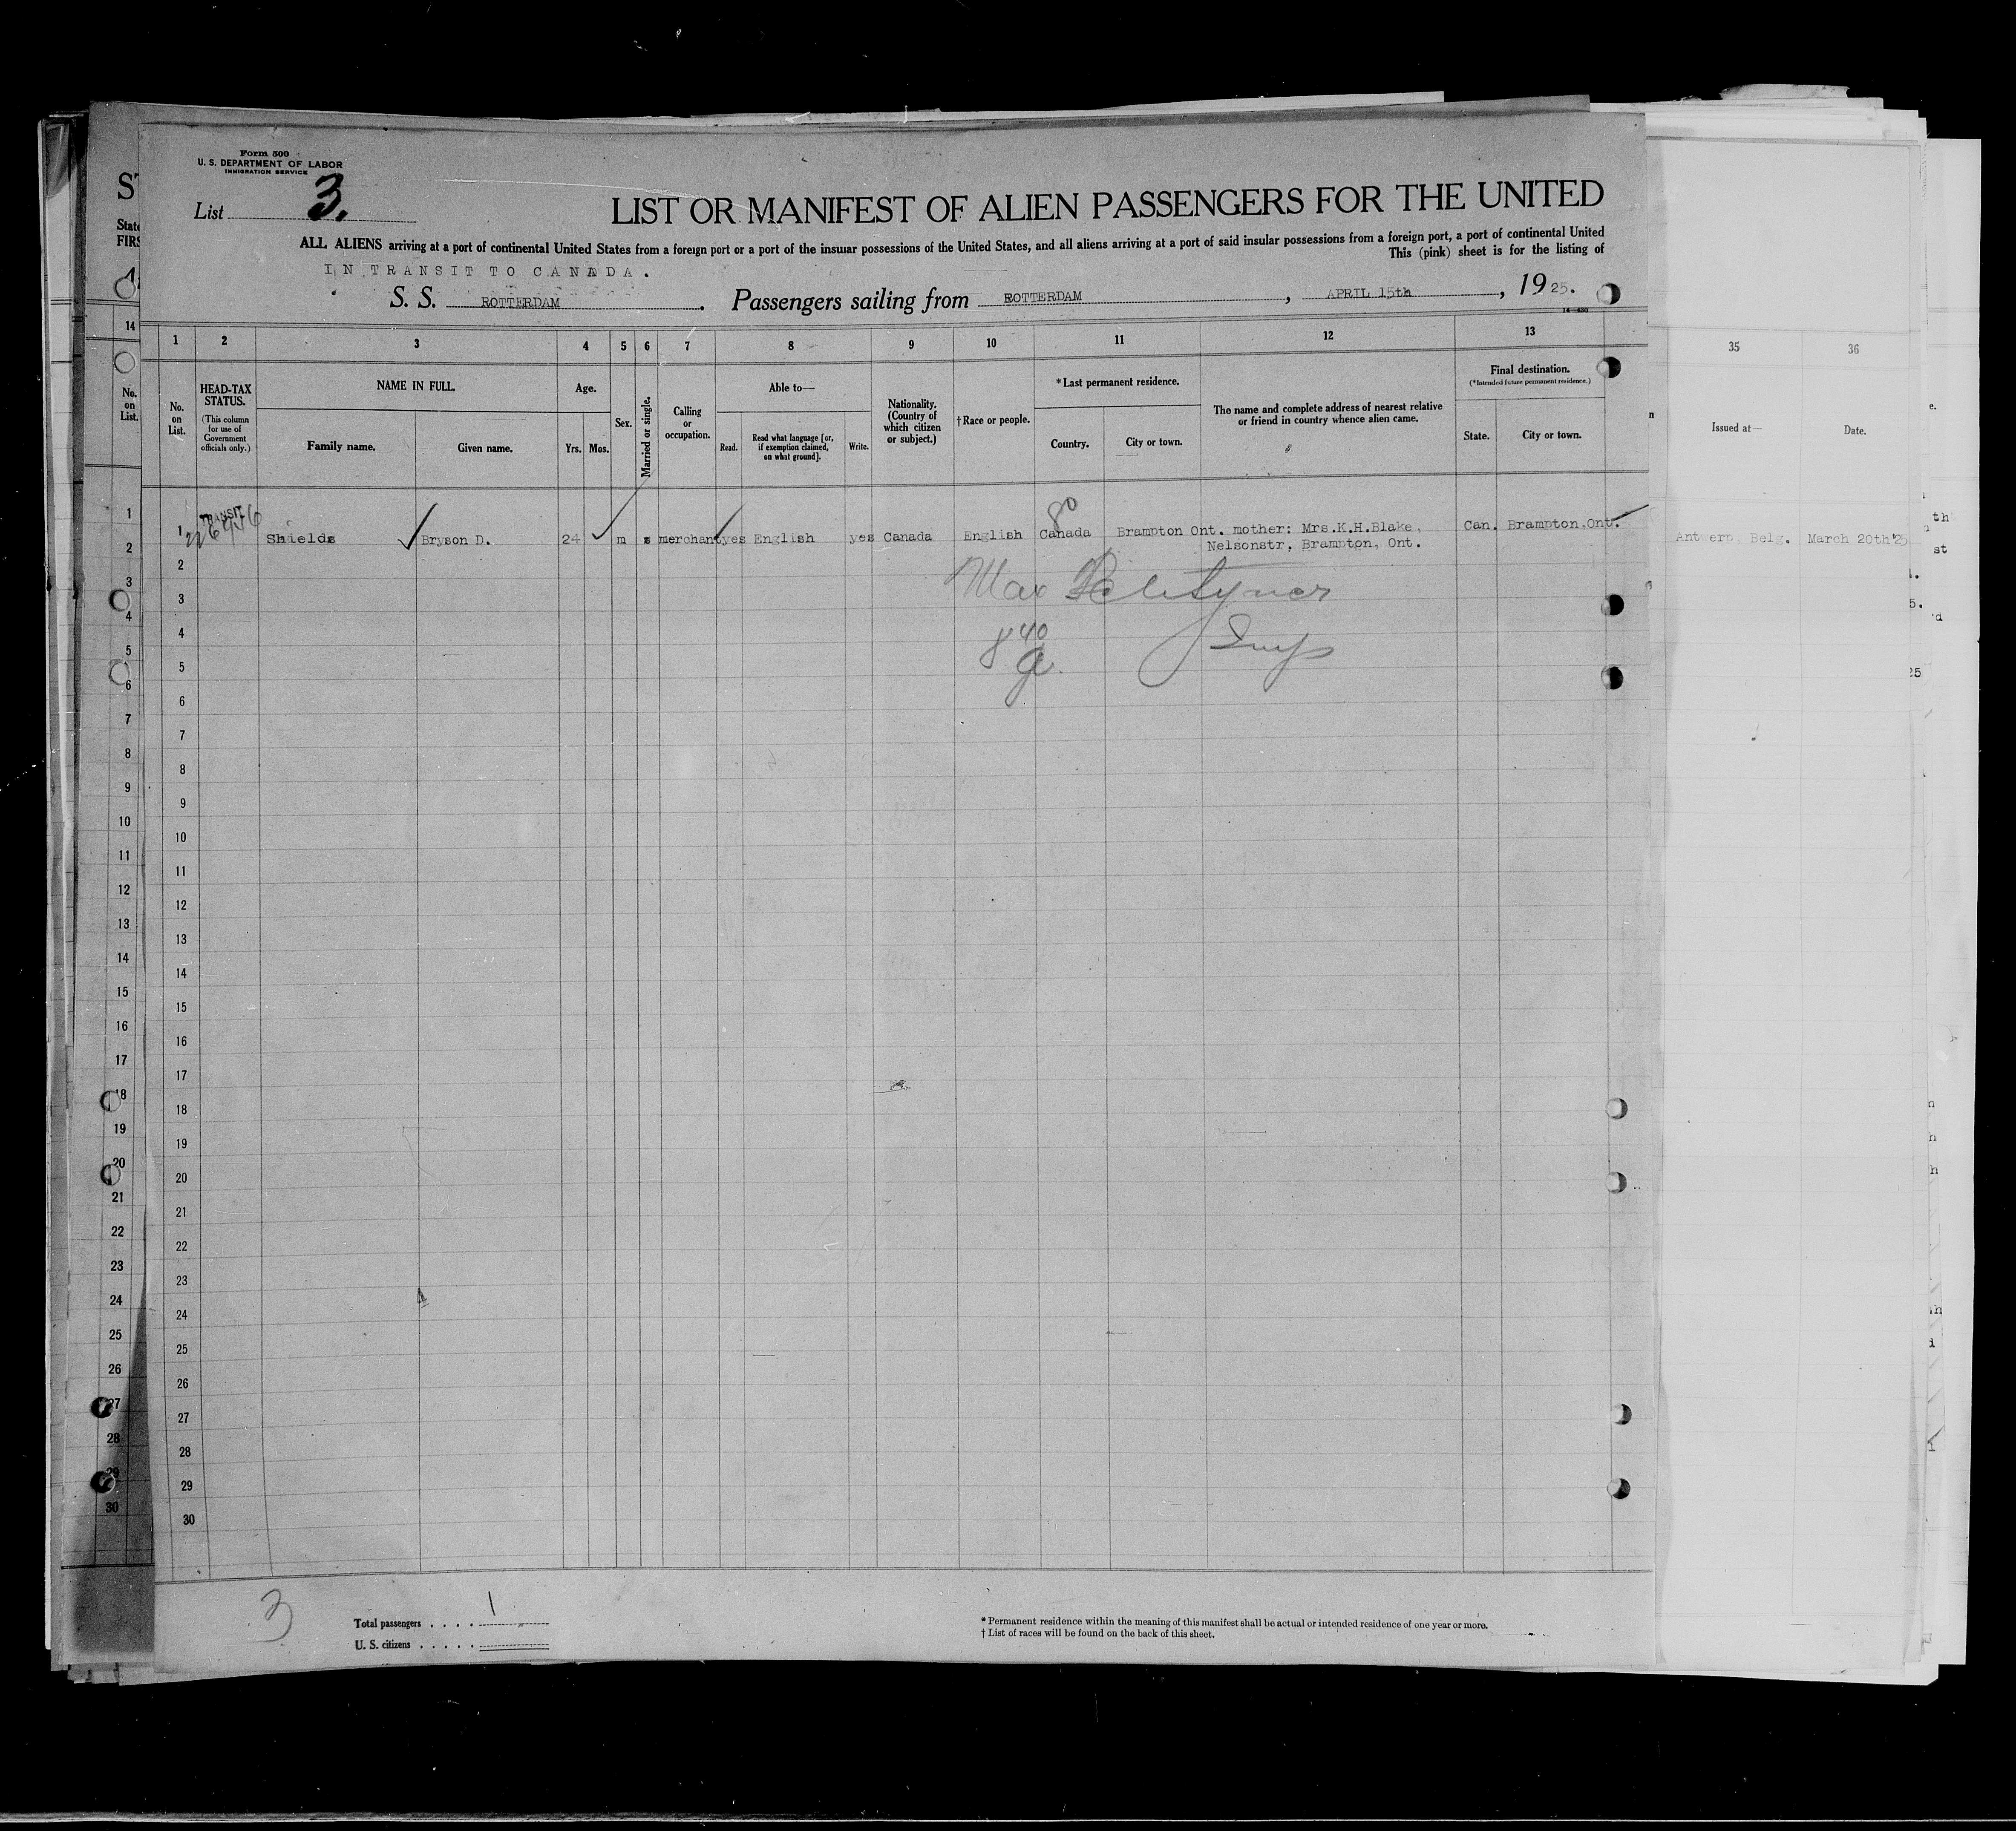 Form 500
U. S. DEPARTMENT OF LABOR
IMMIGRATION SERVICE
List 3.
LIST OR MANIFEST OF ALIEN PASSENGERS FOR THE UNITED
ALL ALIENS arriving at a port of continental United States from a foreign port or a port of the insular possessions of the United States, and all aliens arriving at a port of said insular possessions from a foreign port, a port of continental United
This (pink) sheet is for the listing of
IN TRANSIT TO CANADA.
S. S. ROTTERDAM. Passengers sailing from ROTTERDAM, APRIL 15th, 1925.
1 2 3 4 5 6 7 8 9 10 11 12 13
No. on List.
HEAD-TAX STATUS.
(This column for use of Government officials only.)
NAME IN FULL.
Family name. Given name.
Age.
Yrs. Mos.
Sex.
Married or single.
Calling or occupation.
Able to—
Read. Read what language [or, if exemption claimed, on what ground]. Write.
Nationality. (Country of which citizen or subject.)
†Race or people.
*Last permanent residence.
Country. City or town.
The name and complete address of nearest relative or friend in country whence alien came.
Final destination.
(*Intended future permanent residence.)
State. City or town.
35 36
Issued at— Date.
TRANSIT
1 Shields Bryson D. 24 m s merchant yes English yes Canada English Canada Brampton Ont. mother: Mrs.K.H.Blake, Can. Brampton,Ont.
Nelsonstr, Brampton, Ont.
Antwerp, Belg. March 20th'25
2
3
4
5
6
7
8
9
10
11
12
13
14
15
16
17
18
19
20
21
22
23
24
25
26
27
28
29
30
3
Total passengers . . . . 1
U. S. citizens . . . . .
* Permanent residence within the meaning of this manifest shall be actual or intended residence of one year or more.
† List of races will be found on the back of this sheet.